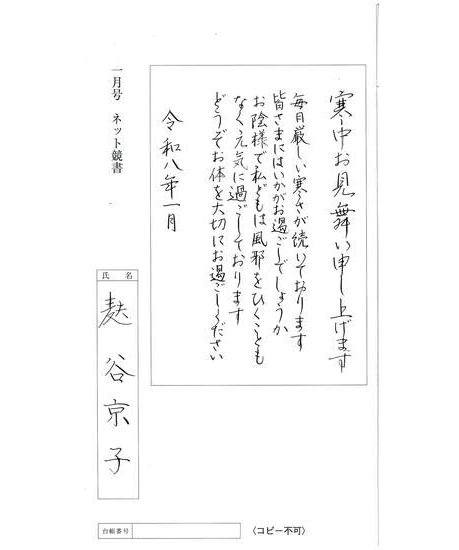 寒中お見舞い申し上げます
毎日厳しい寒さが続いております
皆さまにはいかがお過ごしでしょうか
お陰様で私どもは風邪をひくことも
なく元気に過ごしております
どうぞお体を大切にお過ごしください
令和八年一月
一月号 ネット競書
氏名
麸谷京子
台帳番号
〈コピー不可〉